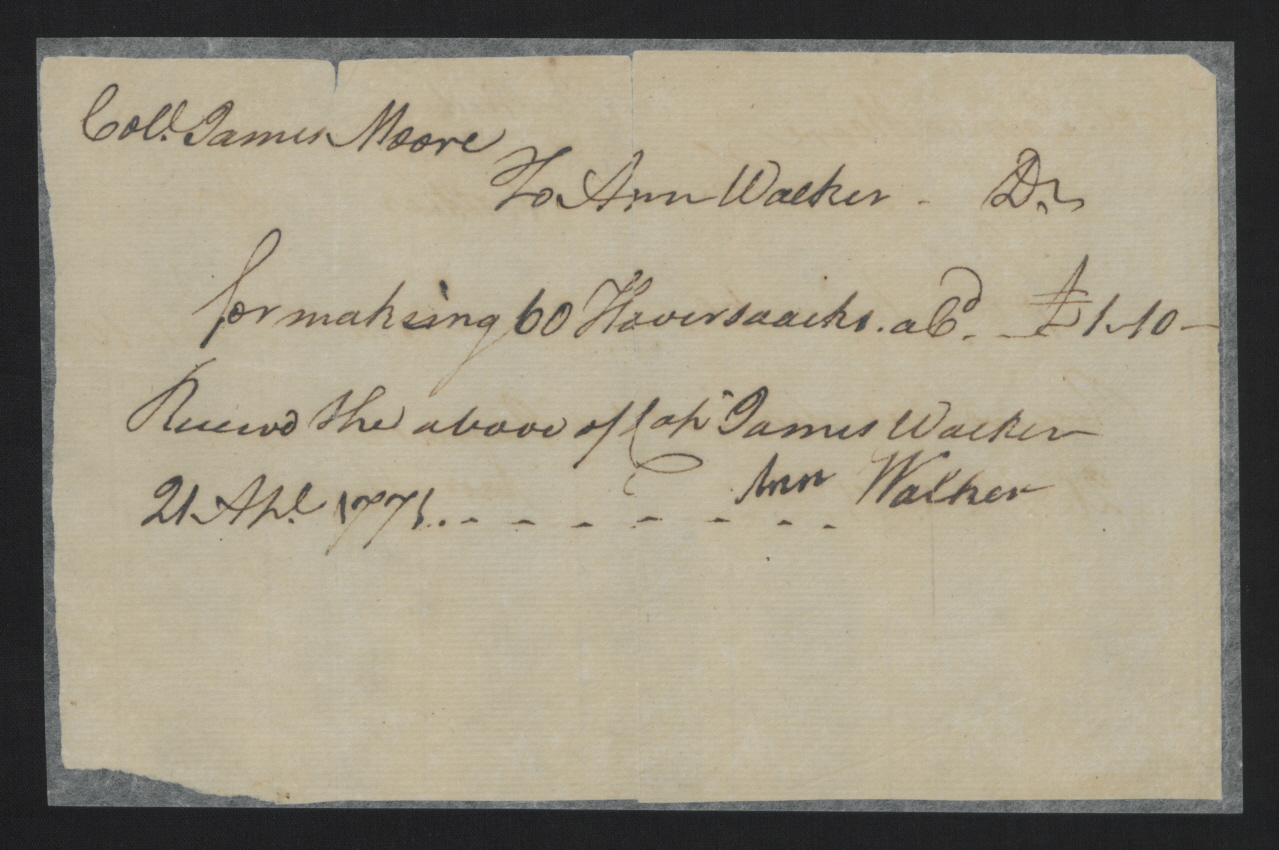 Coll. James Moore
To Ann Walker - Dr
for making 60 Haversaacks. a 6d. - £1..10 -
Receivd the above of Capt James Walker
21 Apl. 1771. - - - - - - Ann Walker